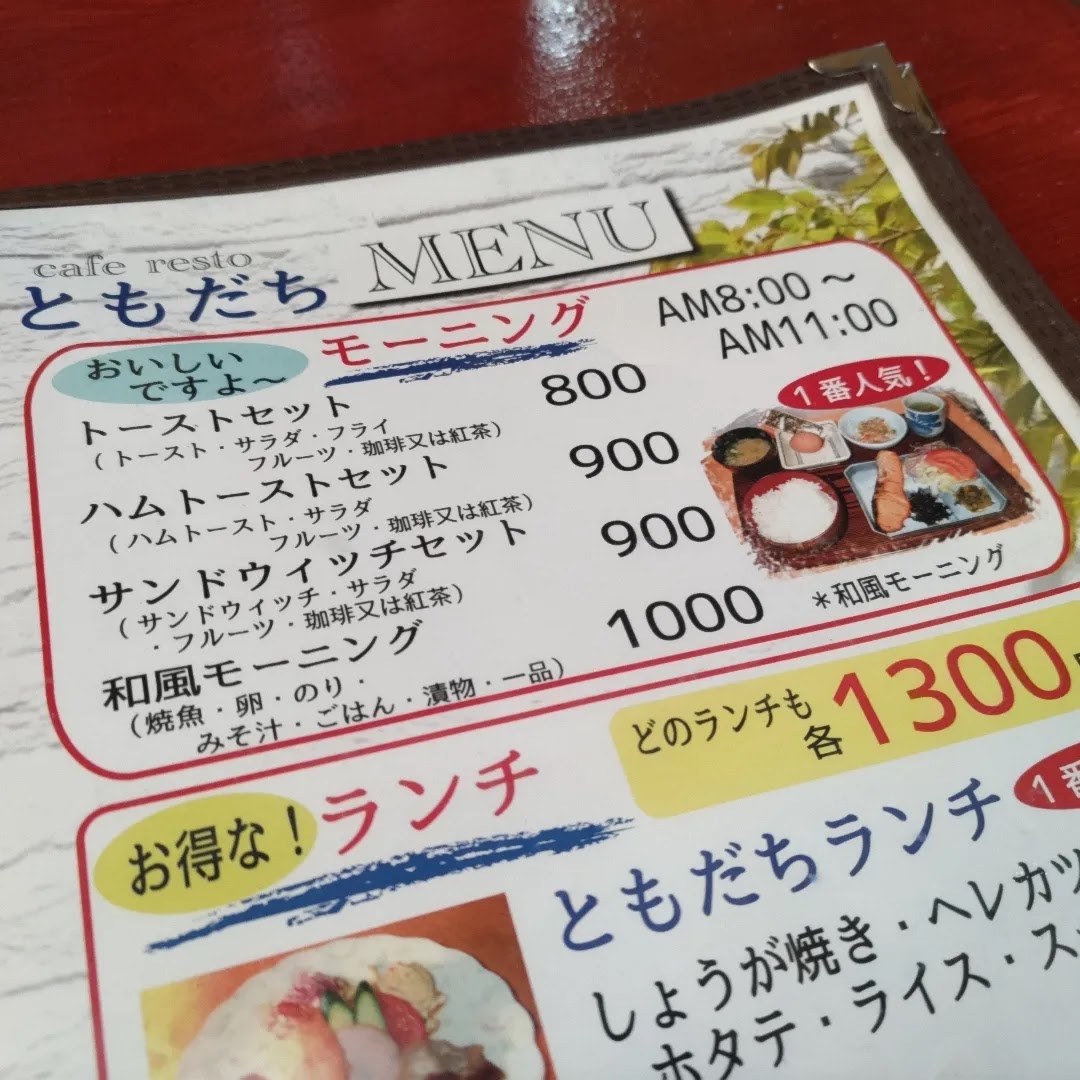 cafe resto
ともだち
MENU
おいしい
ですよ～
モーニング
AM8:00～
AM11:00
トーストセット 800
(トースト・サラダ・フライ
フルーツ・珈琲又は紅茶)
ハムトーストセット 900
(ハムトースト・サラダ
フルーツ・珈琲又は紅茶)
サンドウィッチセット 900
(サンドウィッチ・サラダ
・フルーツ・珈琲又は紅茶)
和風モーニング 1000
(焼魚・卵・のり・
みそ汁・ごはん・漬物・一品)
1番人気！
＊和風モーニング
お得な！
ランチ
どのランチも
各1300
ともだちランチ
1番
しょうが焼き・ヘレカツ
ホタテ・ライス・ス